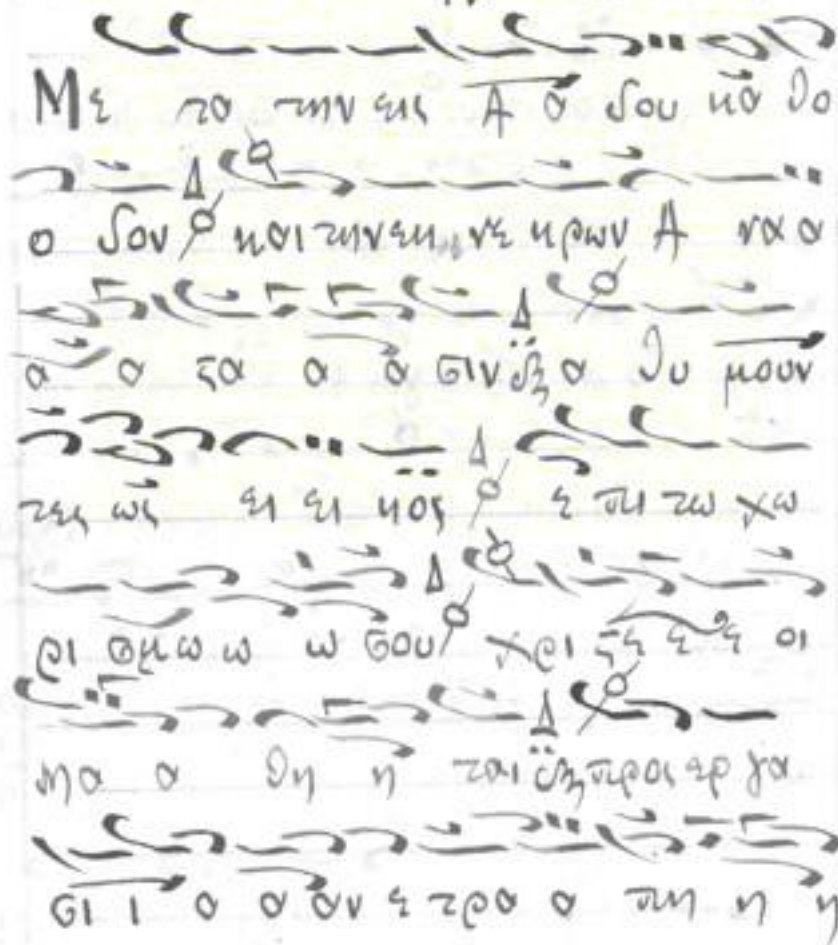 Με τα την εις Α α δου κα θο
ο δον και την εκ νε κρων Α να α
α α ϛα α α σιν α θυ μουν
τες ως ει ει κος ε πι τω χω
ρι σμω ω ω σου χρι ϛε ε ε οι
μα α θη η ται προς ερ γα
σι ι α α αν ε τρα α πη η η